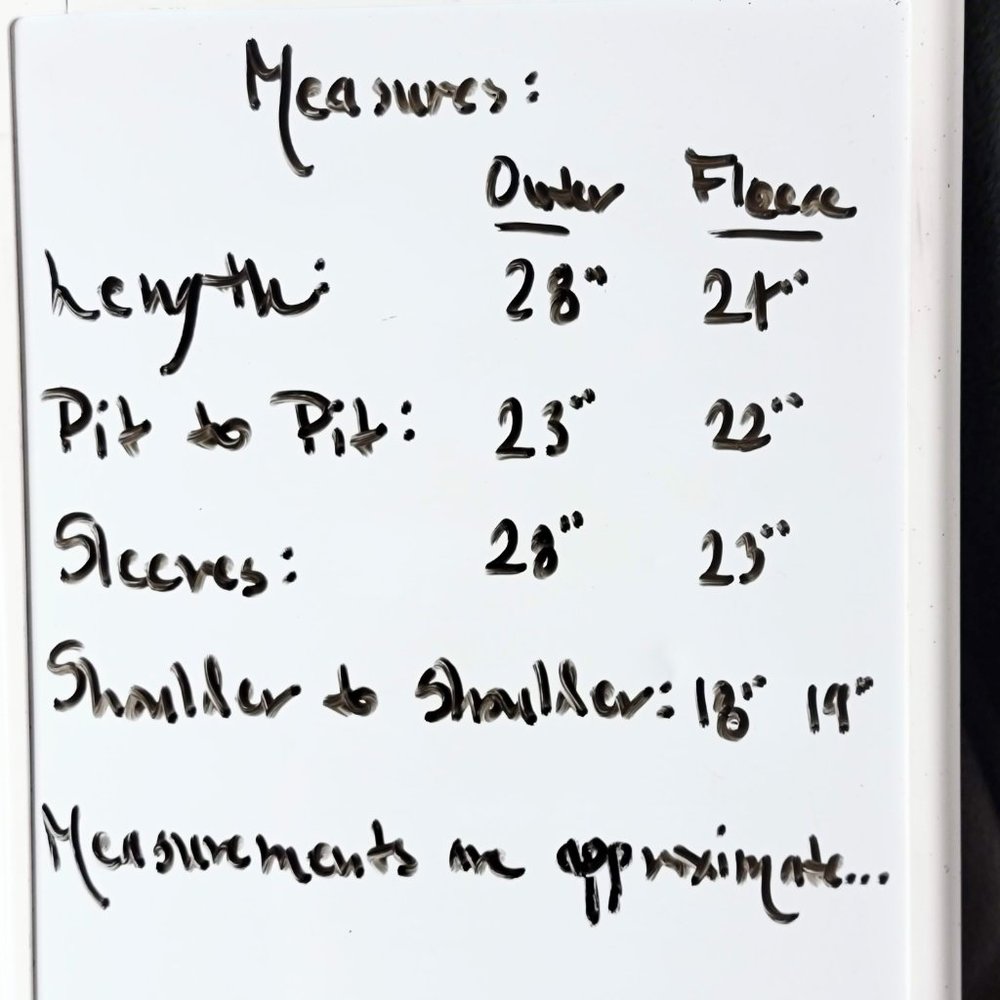 Measures:
Outer Fleece
Length: 28" 24"
Pit to Pit: 23" 22"
Sleeves: 28" 23"
Shoulder to Shoulder: 18" 19"
Measurements are approximate...